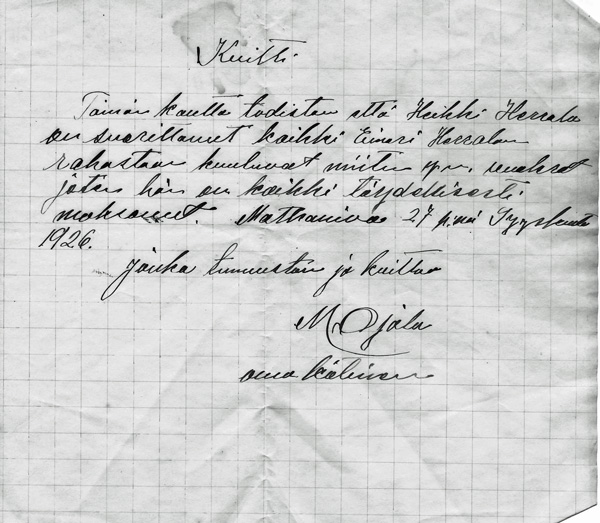 Kuitti
Tämän kautta todistan että Heikki Herrala
on suorittanut kaikki Einari Herralan
rahastoon kuuluvat niitun y.m. vuokrat
joten hän on kaikki täydellisesti
maksanut. Matkaniva 27 p:nä Syyskuuta
1926.
Jonka tunnustan ja kuittaa
M. Ojala
oma käteinen